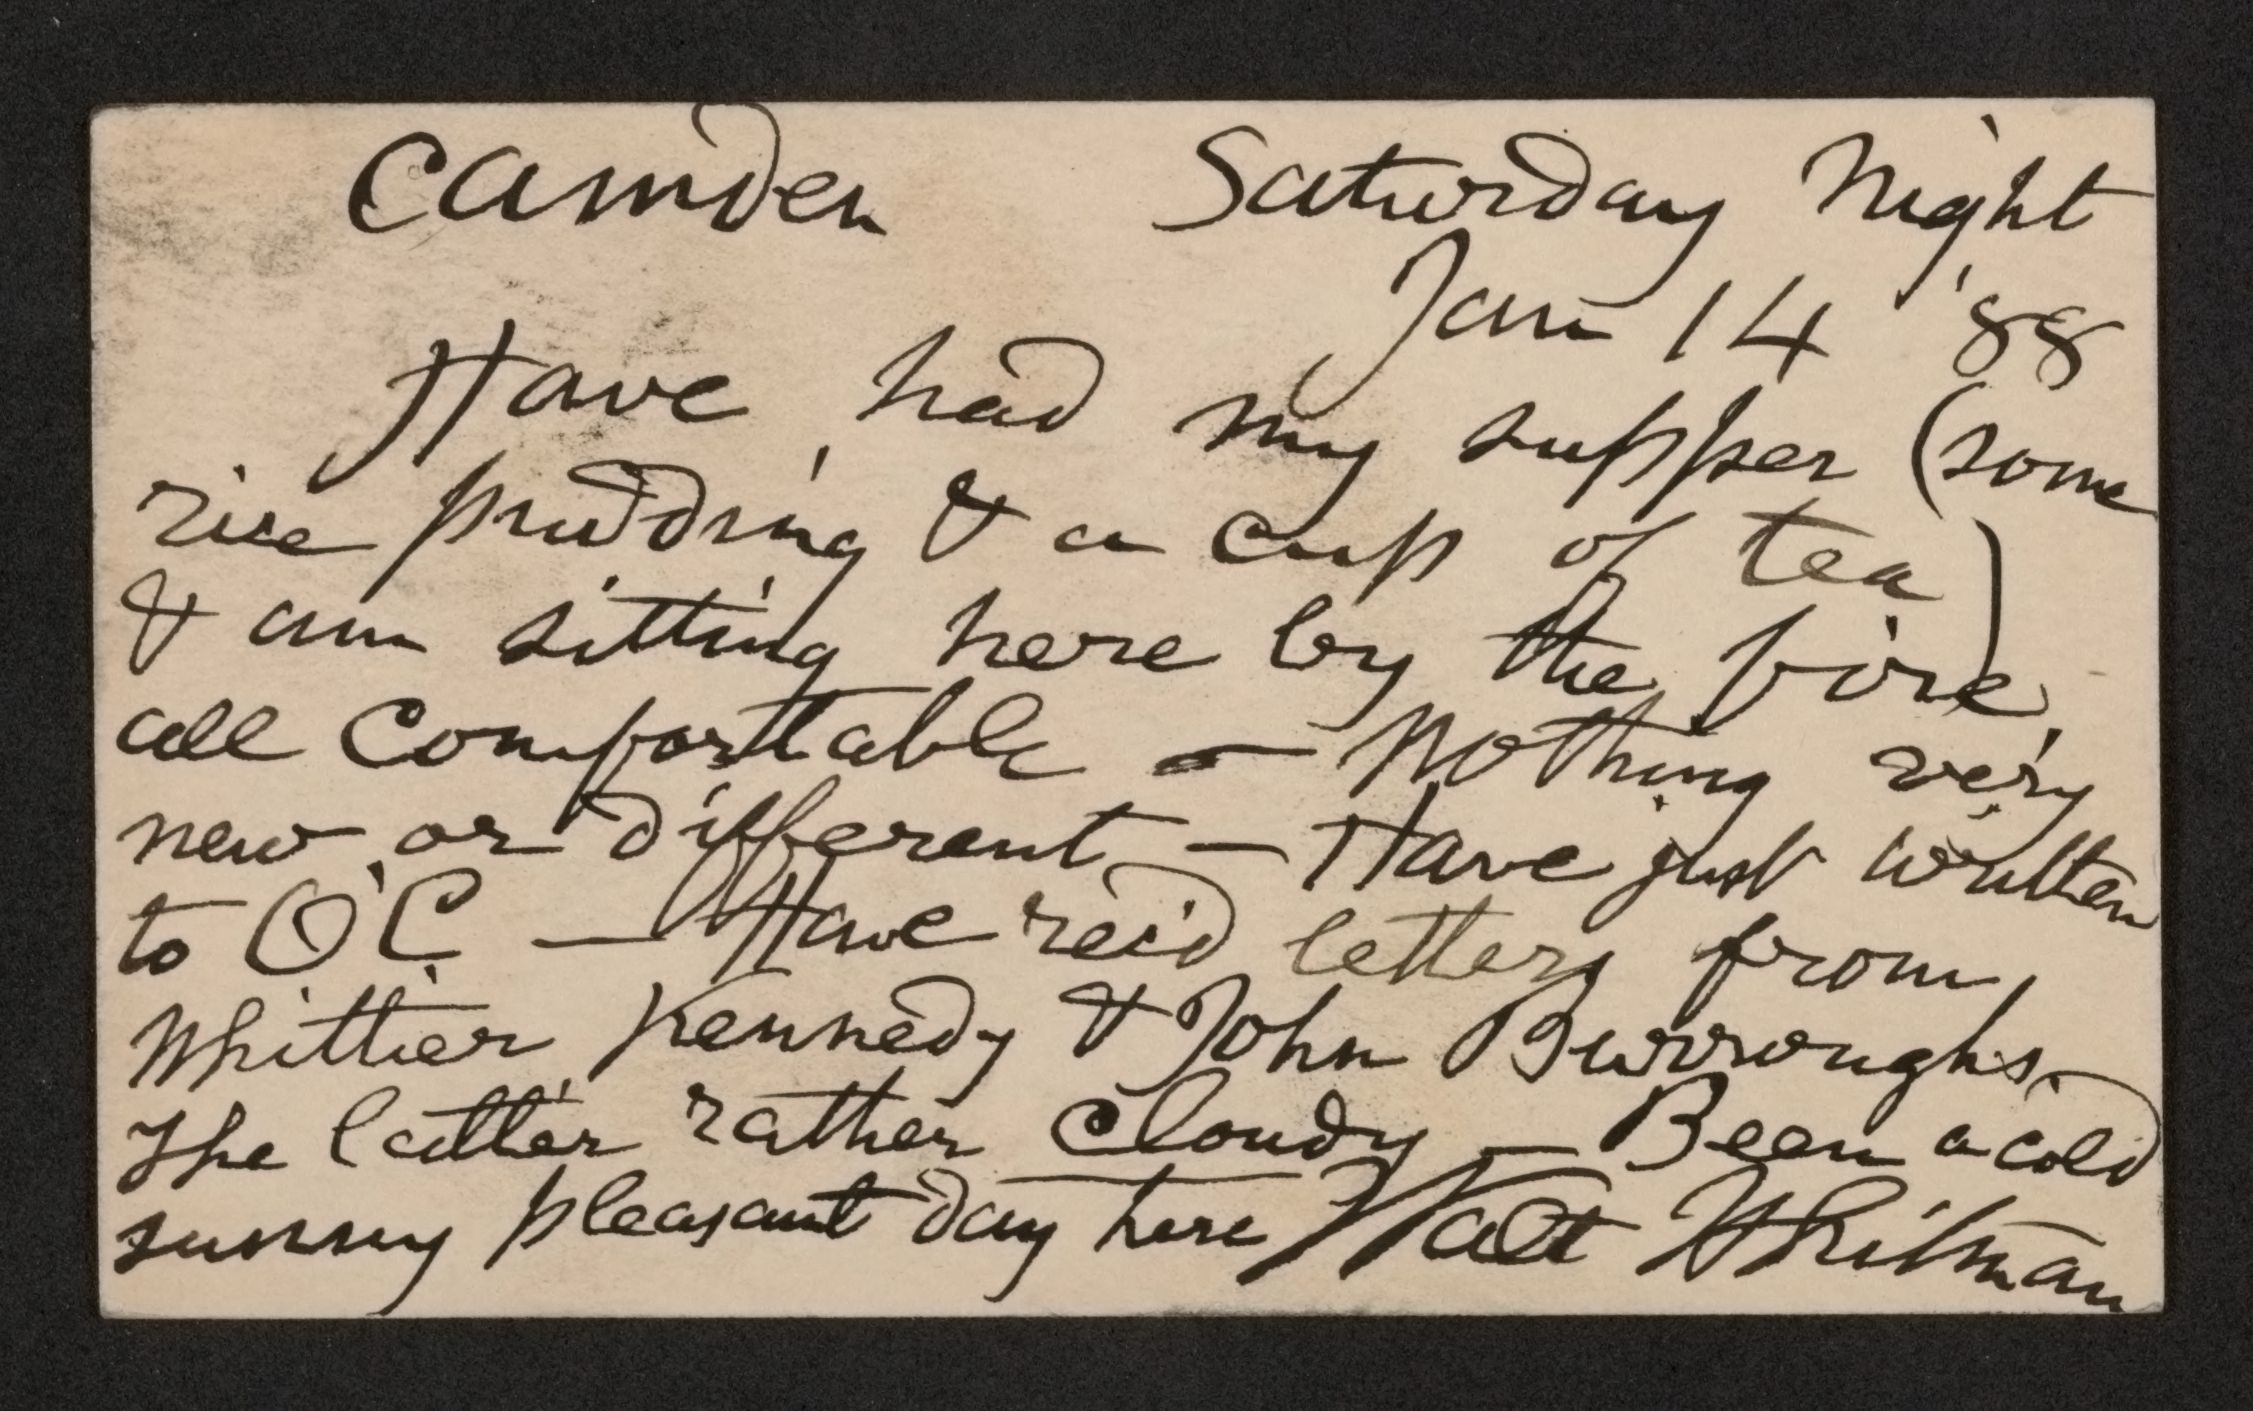 Camden Saturday Night
Jan 14 '88
Have had my supper (some
rice pudding & a cup of tea)
& am sitting here by the fire,
all comfortable — Nothing very
new or different — Have just written
to O'C — Have rec'd letters from
Whittier Kennedy & John Burroughs.
The latter rather cloudy — Been a cold
sunny pleasant day here Walt Whitman